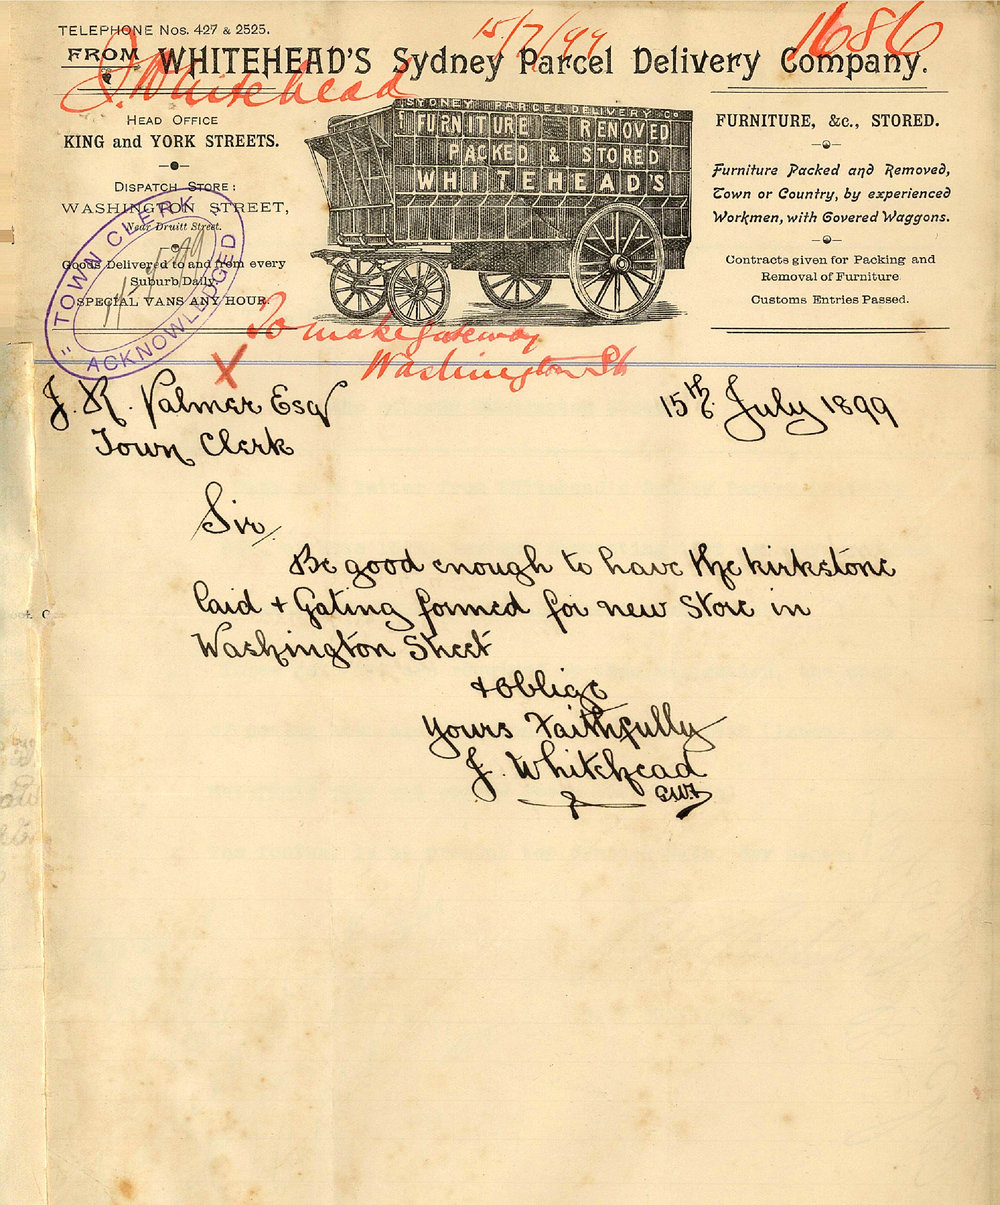 TELEPHONE Nos. 427 & 2525.
15/7/99
1686
FROM WHITEHEAD'S Sydney Parcel Delivery Company.
J. Whitehead
HEAD OFFICE
KING and YORK STREETS.
DISPATCH STORE:
WASHINGTON STREET,
Near Druitt Street.
Goods Delivered to and from every
Suburb Daily
SPECIAL VANS ANY HOUR.
TOWN CLERK
ACKNOWLEDGED
SYDNEY PARCEL DELIVERY Co
FURNITURE REMOVED
PACKED & STORED
WHITEHEAD'S
FURNITURE, &c., STORED.
Furniture Packed and Removed,
Town or Country, by experienced
Workmen, with Covered Waggons.
Contracts given for Packing and
Removal of Furniture
Customs Entries Passed.
To make gateway
Washington St
X
J. R. Palmer Esq
15th. July 1899
Town Clerk
Sir
Be good enough to have the kirkstone
laid + Gating formed for new Store in
Washington Street
+ oblige
Yours Faithfully
J. Whitehead